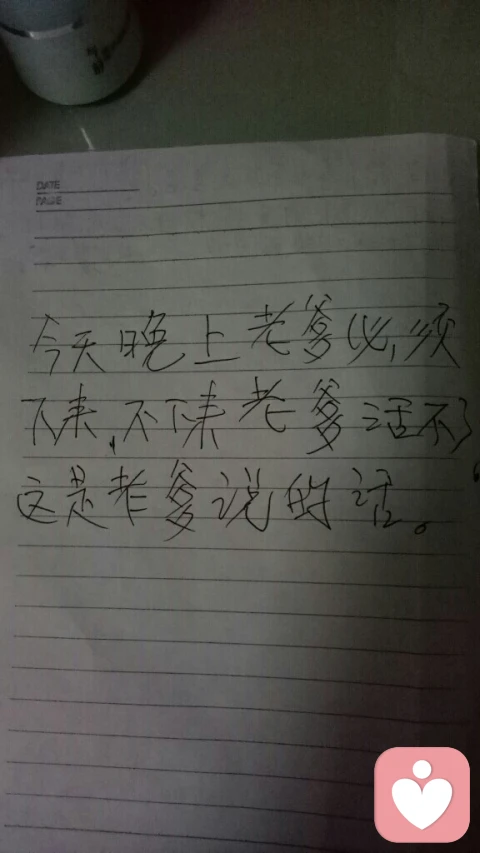 DATE
PAGE
今天晚上老爹必须
下来,不下来老爹活不了
这是老爹说的话。